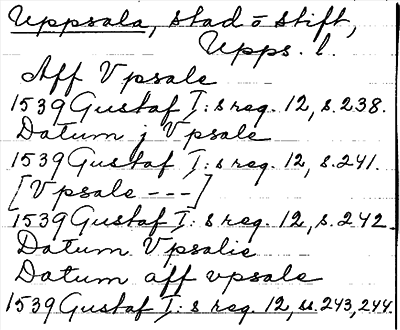 Uppsala, stad o stift,
Upps. l.
Aff Vpsale
1539 Gustaf I:s reg. 12, s. 238.
Datum j Vpsale
1539 Gustaf I:s reg. 12, s. 241.
[Vpsale ---]
1539 Gustaf I:s reg. 12, s. 242.
Datum Vpsalie
Datum aff vpsale
1539 Gustaf I:s reg. 12, ss. 243, 244.